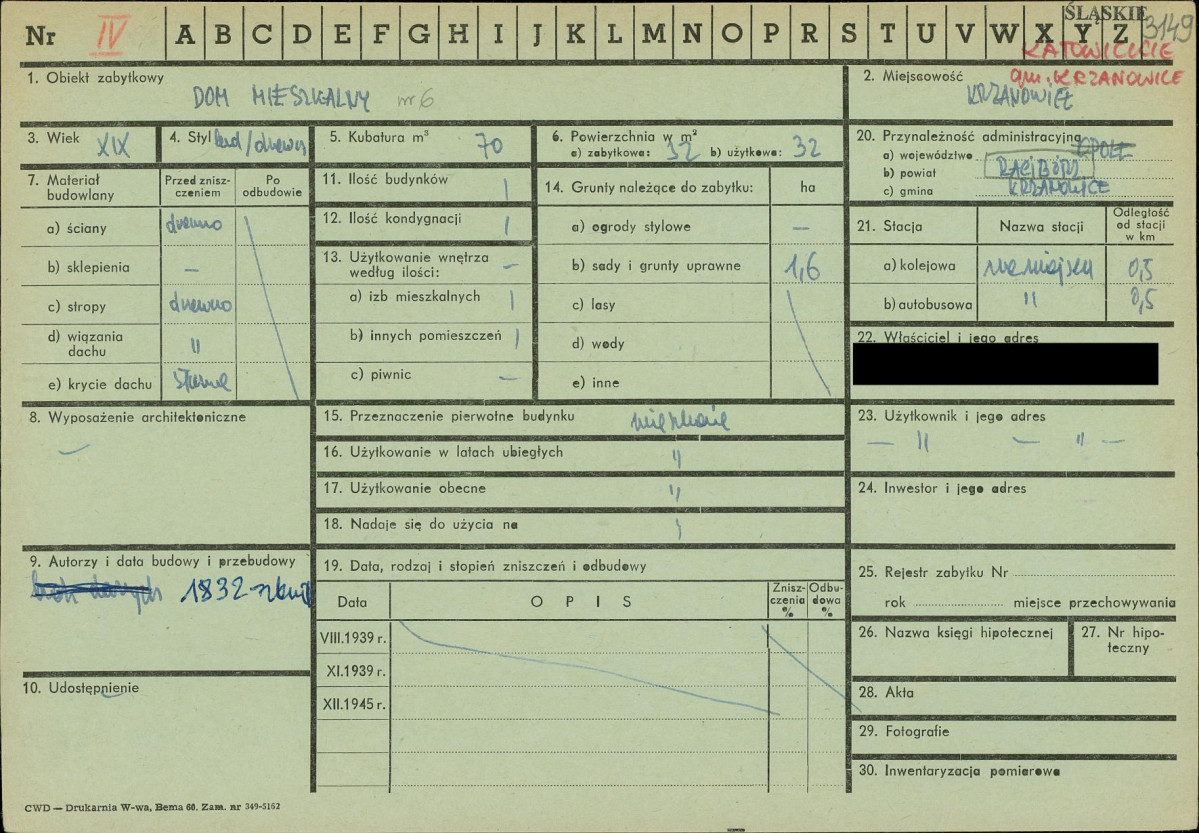 Nr IV A B C D E F G H I J K L M N O P R S T U V W X Y Z
ŚLĄSKIE 3149
KATOWICKIE
gm. KRZANOWICE
1. Obiekt zabytkowy
DOM MIESZKALNY nr 6
2. Miejscowość
3. Wiek XIX
4. Styl lud/drewn
5. Kubatura m³ 70
6. Powierzchnia w m²
a) zabytkowa: 32 b) użytkowa: 32
7. Materiał budowlany
Przed zniszczeniem
Po odbudowie
a) ściany drewno
b) sklepienia —
c) stropy drewno
d) wiązania dachu "
e) krycie dachu
8. Wyposażenie architektoniczne
—
9. Autorzy i data budowy i przebudowy
brak danych 1832
10. Udostępnienie
11. Ilość budynków 1
12. Ilość kondygnacji 1
13. Użytkowanie wnętrza według ilości: —
a) izb mieszkalnych 1
b) innych pomieszczeń 1
c) piwnic —
14. Grunty należące do zabytku: ha
a) ogrody stylowe —
b) sady i grunty uprawne 1,6
c) lasy
d) wody
e) inne
15. Przeznaczenie pierwotne budynku mieszkanie
16. Użytkowanie w latach ubiegłych "
17. Użytkowanie obecne "
18. Nadaje się do użycia na
19. Data, rodzaj i stopień zniszczeń i odbudowy
Data OPIS Zniszczenia % Odbudowa %
VIII.1939 r.
XI.1939 r.
XII.1945 r.
20. Przynależność administracyjna
a) województwo OPOLE
b) powiat RACIBÓRZ
c) gmina KRZANOWICE
21. Stacja Nazwa stacji Odległość od stacji w km
a) kolejowa na miejscu 0,5
b) autobusowa " 0,5
22. Właściciel i jego adres
23. Użytkownik i jego adres
— " — " —
24. Inwestor i jego adres
25. Rejestr zabytku Nr
rok miejsce przechowywania
26. Nazwa księgi hipotecznej
27. Nr hipoteczny
28. Akta
29. Fotografie
30. Inwentaryzacja pomiarowa
CWD — Drukarnia W-wa, Bema 60. Zam. nr 349-5162